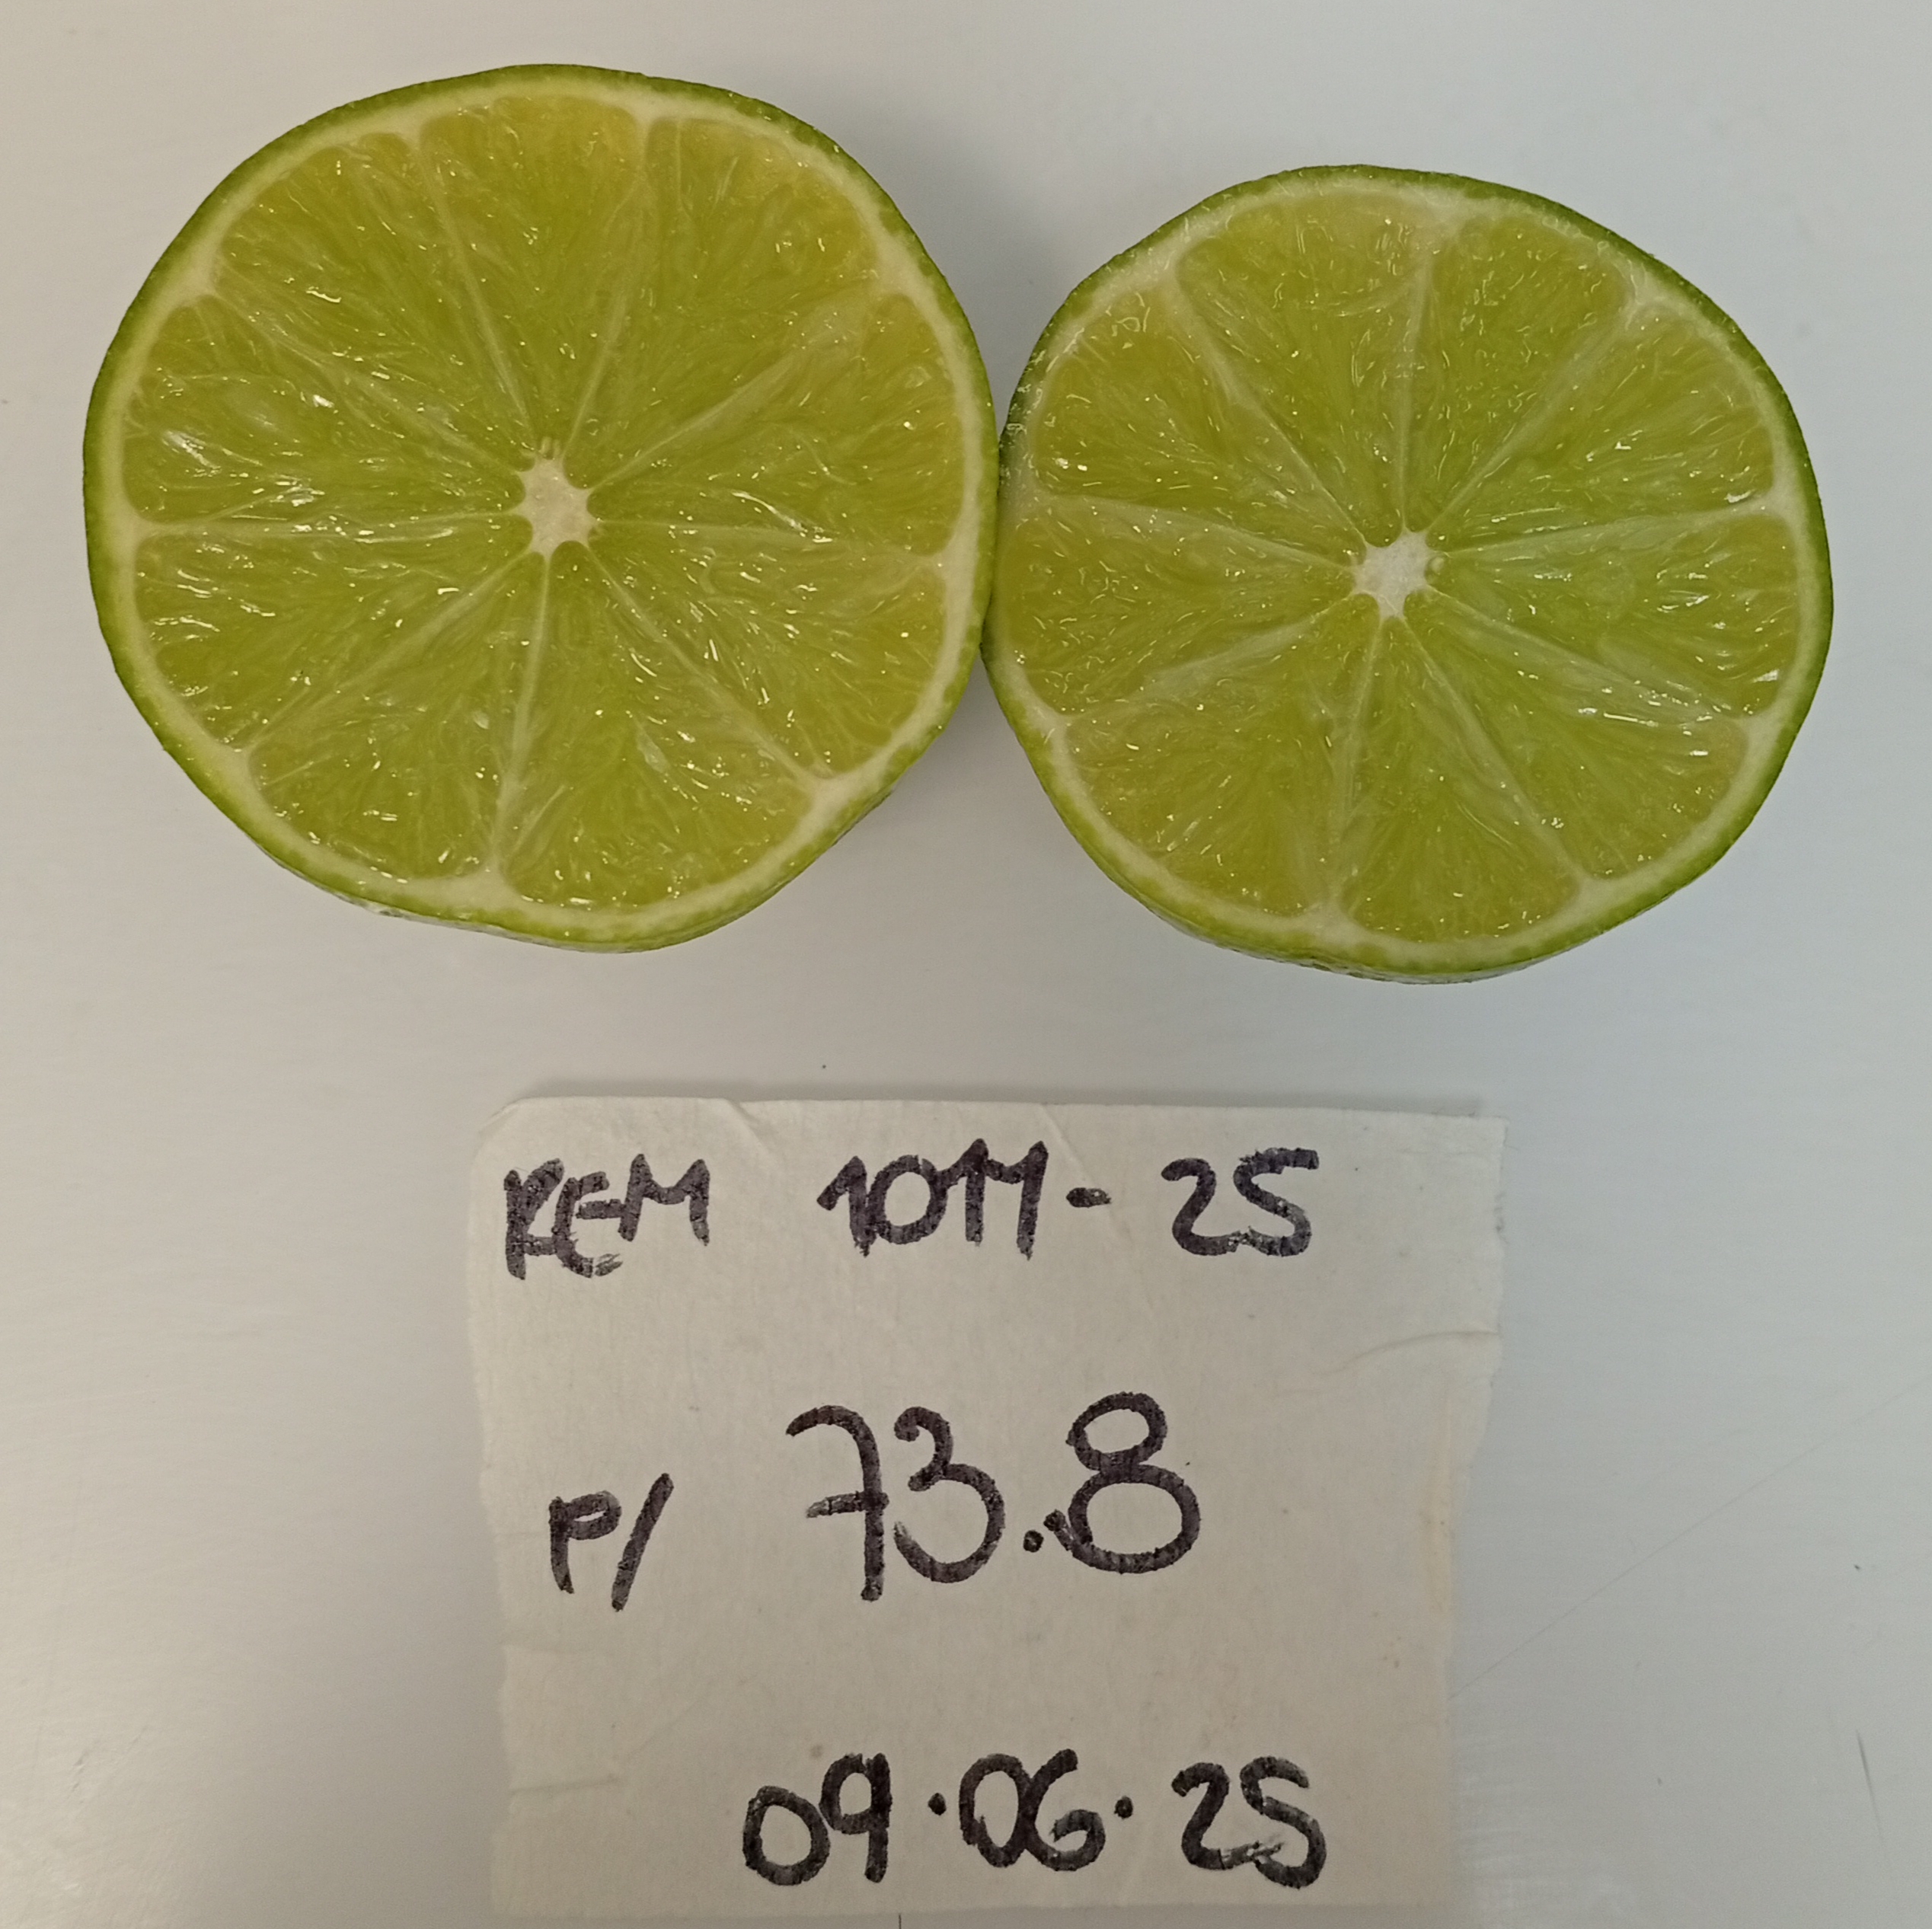 REM 1011-25
P/ 73.8
09.06.25